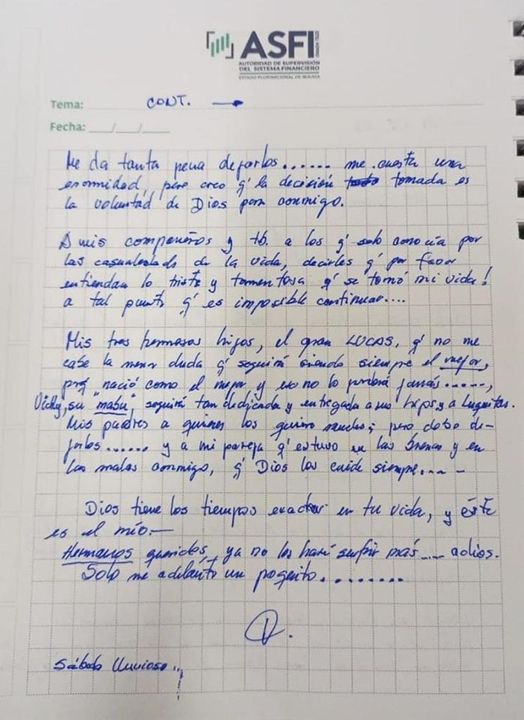 ASFI
AUTORIDAD DE SUPERVISIÓN
DEL SISTEMA FINANCIERO
ESTADO PLURINACIONAL DE BOLIVIA
Tema: CONT.
Fecha: ___/___/___
Me da tanta pena dejarlos...... me cuesta una
enormidad, pero creo q' la decisión tomada es
la voluntad de Dios para conmigo.
A mis compañeros y tb. a los q' solo conocía por
las casualidades de la vida, decirles q' por favor
entiendan lo triste y tormentosa q' se tornó mi vida!
a tal punto q' es imposible continuar....
Mis tres hermosos hijos, el gran LUCAS, q' no me
cabe la menor duda q' seguirá siendo siempre el mejor,
porq' nació como el mejor y eso no lo perderá jamás......,
Vichy, su "mabu", seguirá tan dedicada y entregada a sus hijos y a Luquitas.
Mis padres a quienes los quiero mucho; pero debo de-
jarlos...... y a mi pareja q' estuvo en las buenas y en
las malas conmigo, q' Dios los cuide siempre....
Dios tiene los tiempos exactos en tu vida, y éste
es el mío.-
Hermanos queridos, ya no los haré sufrir más.... adios.
Solo me adelanto un poquito........
Sábado lluvioso..